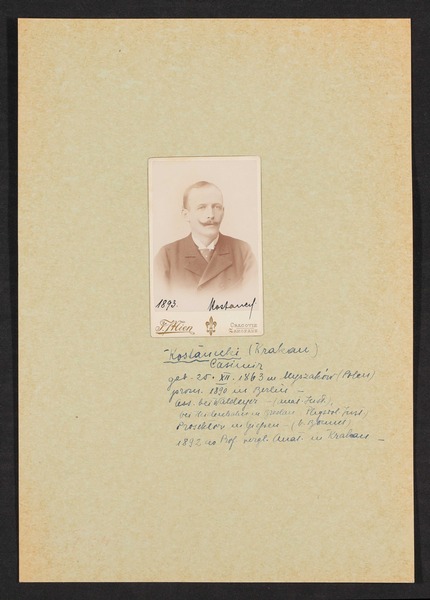 1893. Kostanecki
Cracovie
Kostanecki (Krakau)
Casimir
geb. 25. XII. 1863 in Myszaków (Polen)
prom. 1890 in Berlin –
Ass. bei Waldeyer – (Anat. Inst.),
Prosektor in Giessen – (b. Bonnet)
1892 ao Prof. vergl. Anat. in Krakau –